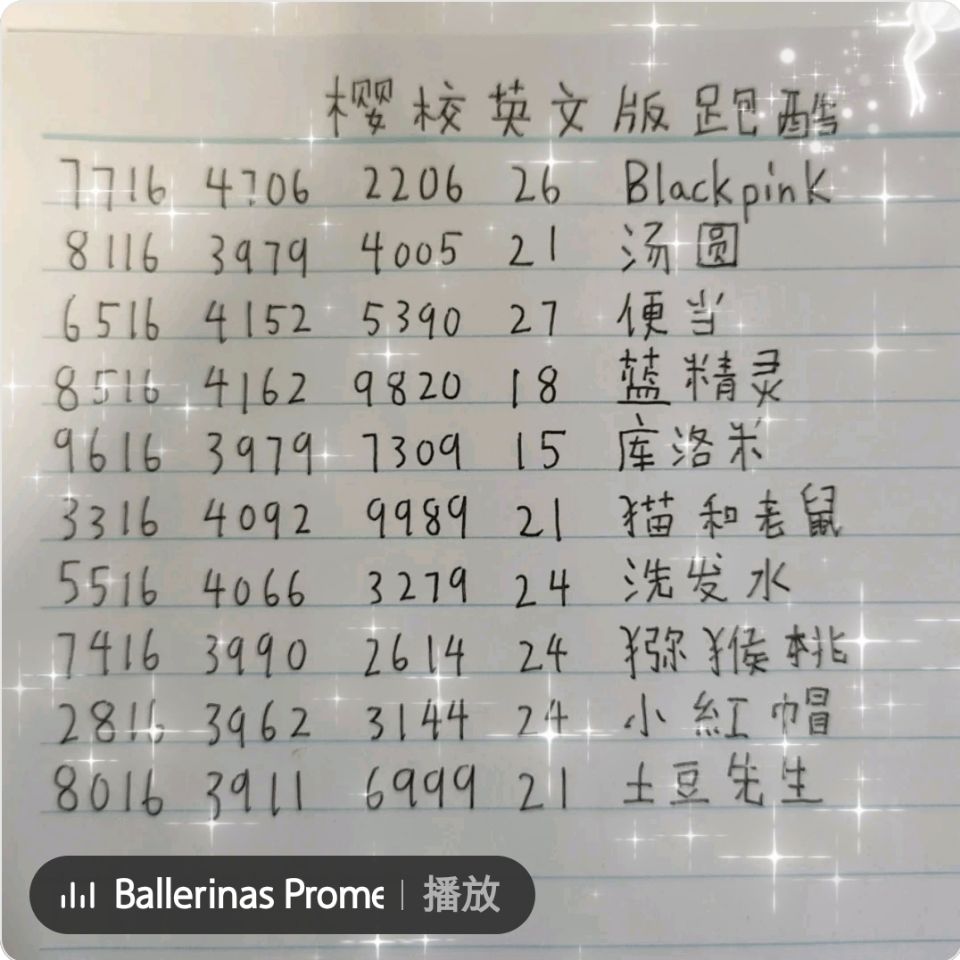 樱校英文版跑酷
7716 4706 2206 26 Blackpink
8116 3979 4005 21 汤圆
6516 4152 5390 27 便当
8516 4162 9820 18 蓝精灵
9616 3979 7309 15 库洛米
3316 4092 9989 21 猫和老鼠
5516 4066 3279 24 洗发水
7416 3990 2614 24 猕猴桃
2816 3962 3144 24 小紅帽
8016 3911 6999 21 土豆先生
Ballerinas Prome 播放